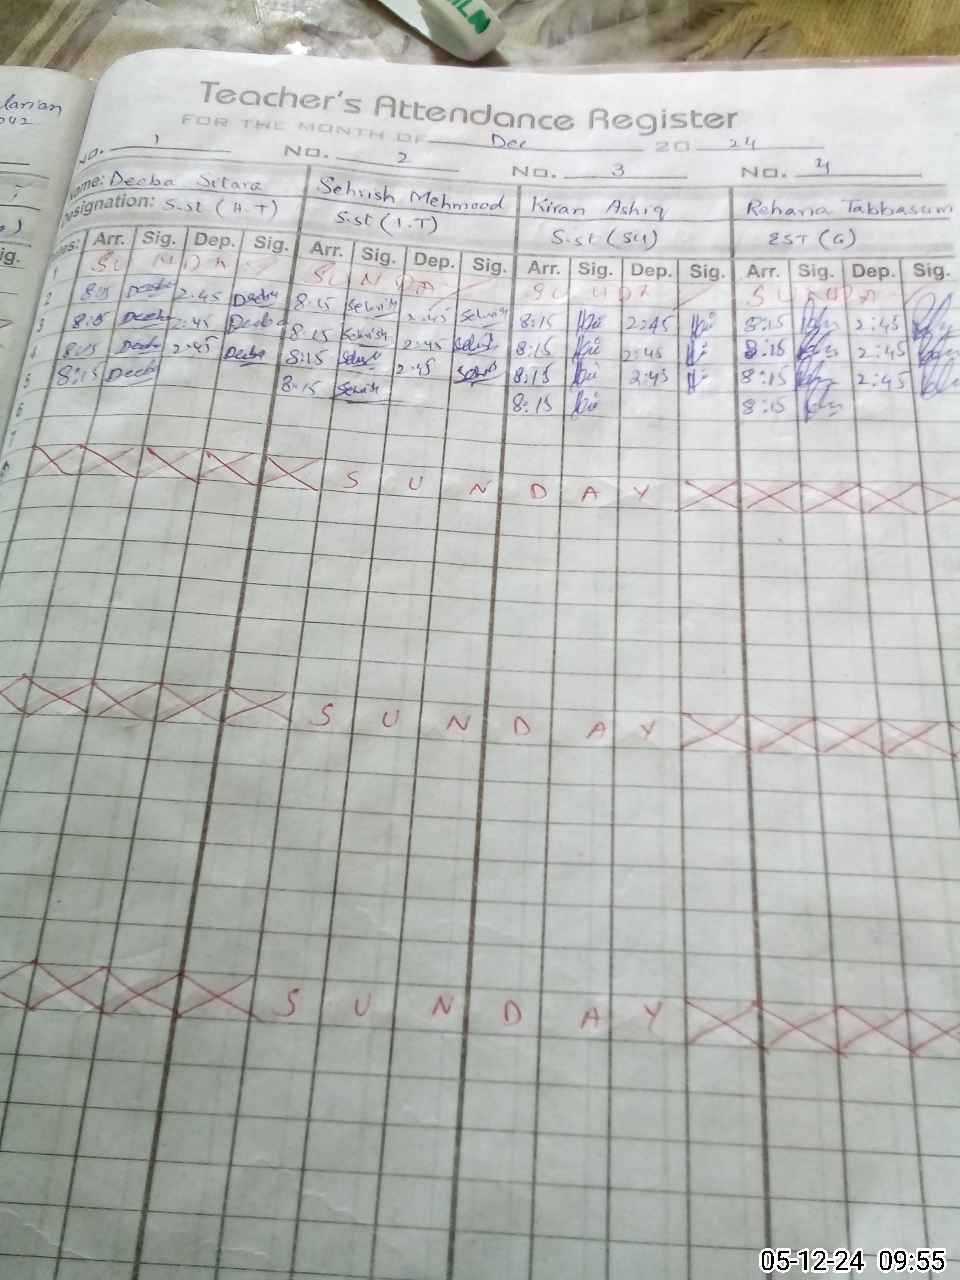 Teacher's Attendance Register
FOR THE MONTH OF Dec 20 24
NO. 1 NO. 2 NO. 3 NO. 4
Name: Deeba Sitara Sehrish Mehmood Kiran Ashiq Rehana Tabbasum
Designation: S.st (H.T) S.st (I.T) S.st (SU) EST (G)
Arr. Sig. Dep. Sig. Arr. Sig. Dep. Sig. Arr. Sig. Dep. Sig. Arr. Sig. Dep. Sig.
1 SUNDA SUNDA SUNDA SUNDA
2 8:15 Deeba 2:45 Deeba 8:15 Sehrish 2:45 Sehrish 8:15 2:45 8:15 2:45
3 8:15 Deeba 2:45 Deeba 8:15 Sehrish 2:45 8:15 2:45 8:15 2:45
4 8:15 Deeba 2:45 Deeba 8:15 2:45 8:15 2:45 8:15 2:45
5 8:15 Deeba 8:15 Sehrish 8:15 8:15
6
7
8 SUNDAY
SUNDAY
SUNDAY
larian
ig.
05-12-24 09:55